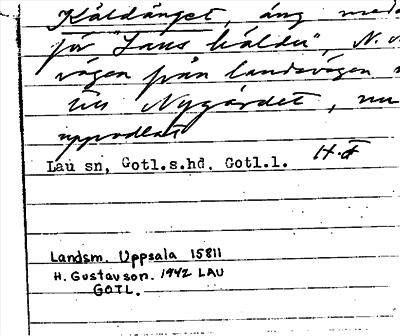 Käldänget, äng med
för "Laus käldu", N.
vägen från landsvägen
till Nygårdet, nu
uppodlat
Lau sn, Gotl.s.hd, Gotl.l. H.G
Landsm. Uppsala 15811
H. Gustavson. 1942 LAU
GOTL.